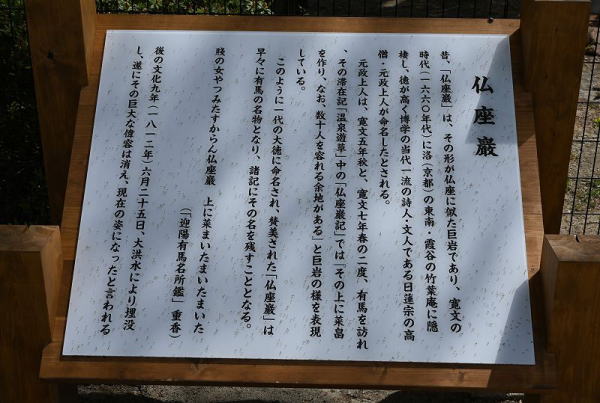 仏座巌
昔、「仏座巌」は、その形が仏座に似た巨岩であり、寛文の
時代(一六六〇年代)に洛(京都)の東南・霞谷の竹葉庵に隠
棲し、徳が高く博学の当代一流の詩人・文人である日蓮宗の高
僧・元政上人が命名したとされる。
元政上人は、寛文五年秋と、寛文七年春の二度、有馬を訪れ
、その滞在記「温泉遊草」中の「仏座巌記」では「その上に菜畠
を作り、なお、数十人を容れる余地がある」と巨岩の様を表現
している。
このように一代の大徳に命名され、賛美された「仏座巌」は
早々に有馬の名物となり、諸記にその名を残すこととなる。
賤の女やつみたすからん仏座巌 上に菜まいたまいたまいた
(「迎陽有馬名所鑑」重香)
後の文化九年(一八一二年)六月二十五日、大洪水により埋没
し、遂にその巨大な偉容は消え、現在の姿になったと言われる